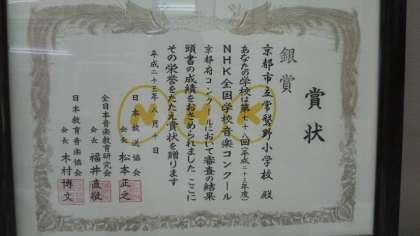 賞状
銀賞
京都市立常磐野小学校 殿
あなたの学校は第七十八回(平成二十三年度)
NHK全国学校音楽コンクール
京都府コンクールにおいて審査の結果
頭書の成績をおさめられました ここに
その栄誉をたたえ賞状を贈ります
平成二十三年 月 日
日本放送協会
会長 松本正之
全日本音楽教育研究会
会長 福井直敬
日本教育音楽協会
会長 木村博文
NHK